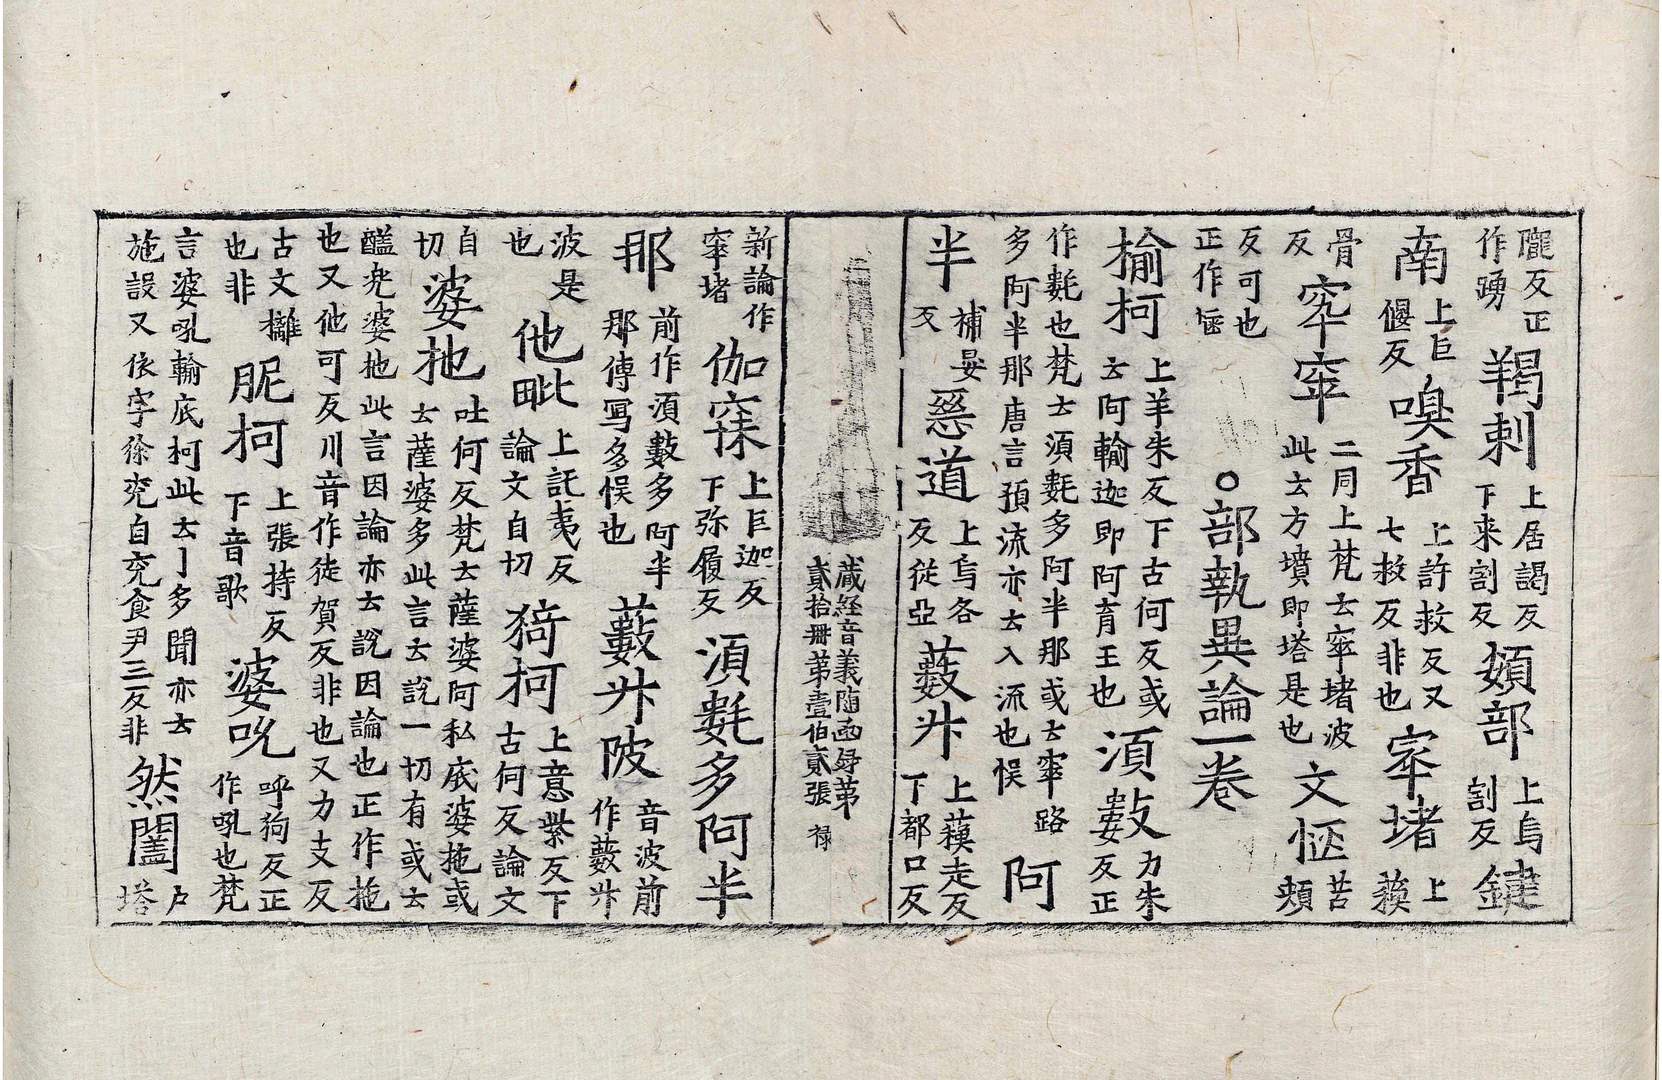 隴反正作踴羯剌上居謁反下来割反頞部上烏割反鍵
南上巨偃反嗅香上許救反又七救反非也窣堵上蘓
骨反窣窣二同上梵云窣堵波此云方墳即塔是也文㥦苦頰
反可也正作㥦○部執異論一卷
揄柯上羊朱反下古何反或云阿輸迦即阿育王也湏數力朱反正
作㲣也梵云湏㲣多阿半那或云窣路多阿半那唐言預流亦云入流也悮阿
半補晏反惡道上烏各反從亞藪斗上蘓走反下都口反
藏經音義随函録第貳拾冊第壹伯貳張 禄
新論作窣堵伽寐上巨迦反下弥履反湏㲣多阿半
那前作湏數多阿半那傳寫多悮也藪斗陂音波前作藪斗
波是也他毗上託夷反論文自切猗柯上意紫反下古何反論文
自切婆扡吐何反梵云薩婆阿私底婆拖或云薩婆多此言云說一切有或云
醯兠婆扡此言因論亦云說因論也正作拖也又他可反川音作徒賀反非也又力支反
古文離也非胒柯上張持反下音歌婆吮呼狗反正作吼也梵
言婆吼輸底柯此云丨多聞亦云施設又依字徐兖自兖食尹三反非然闔户塔